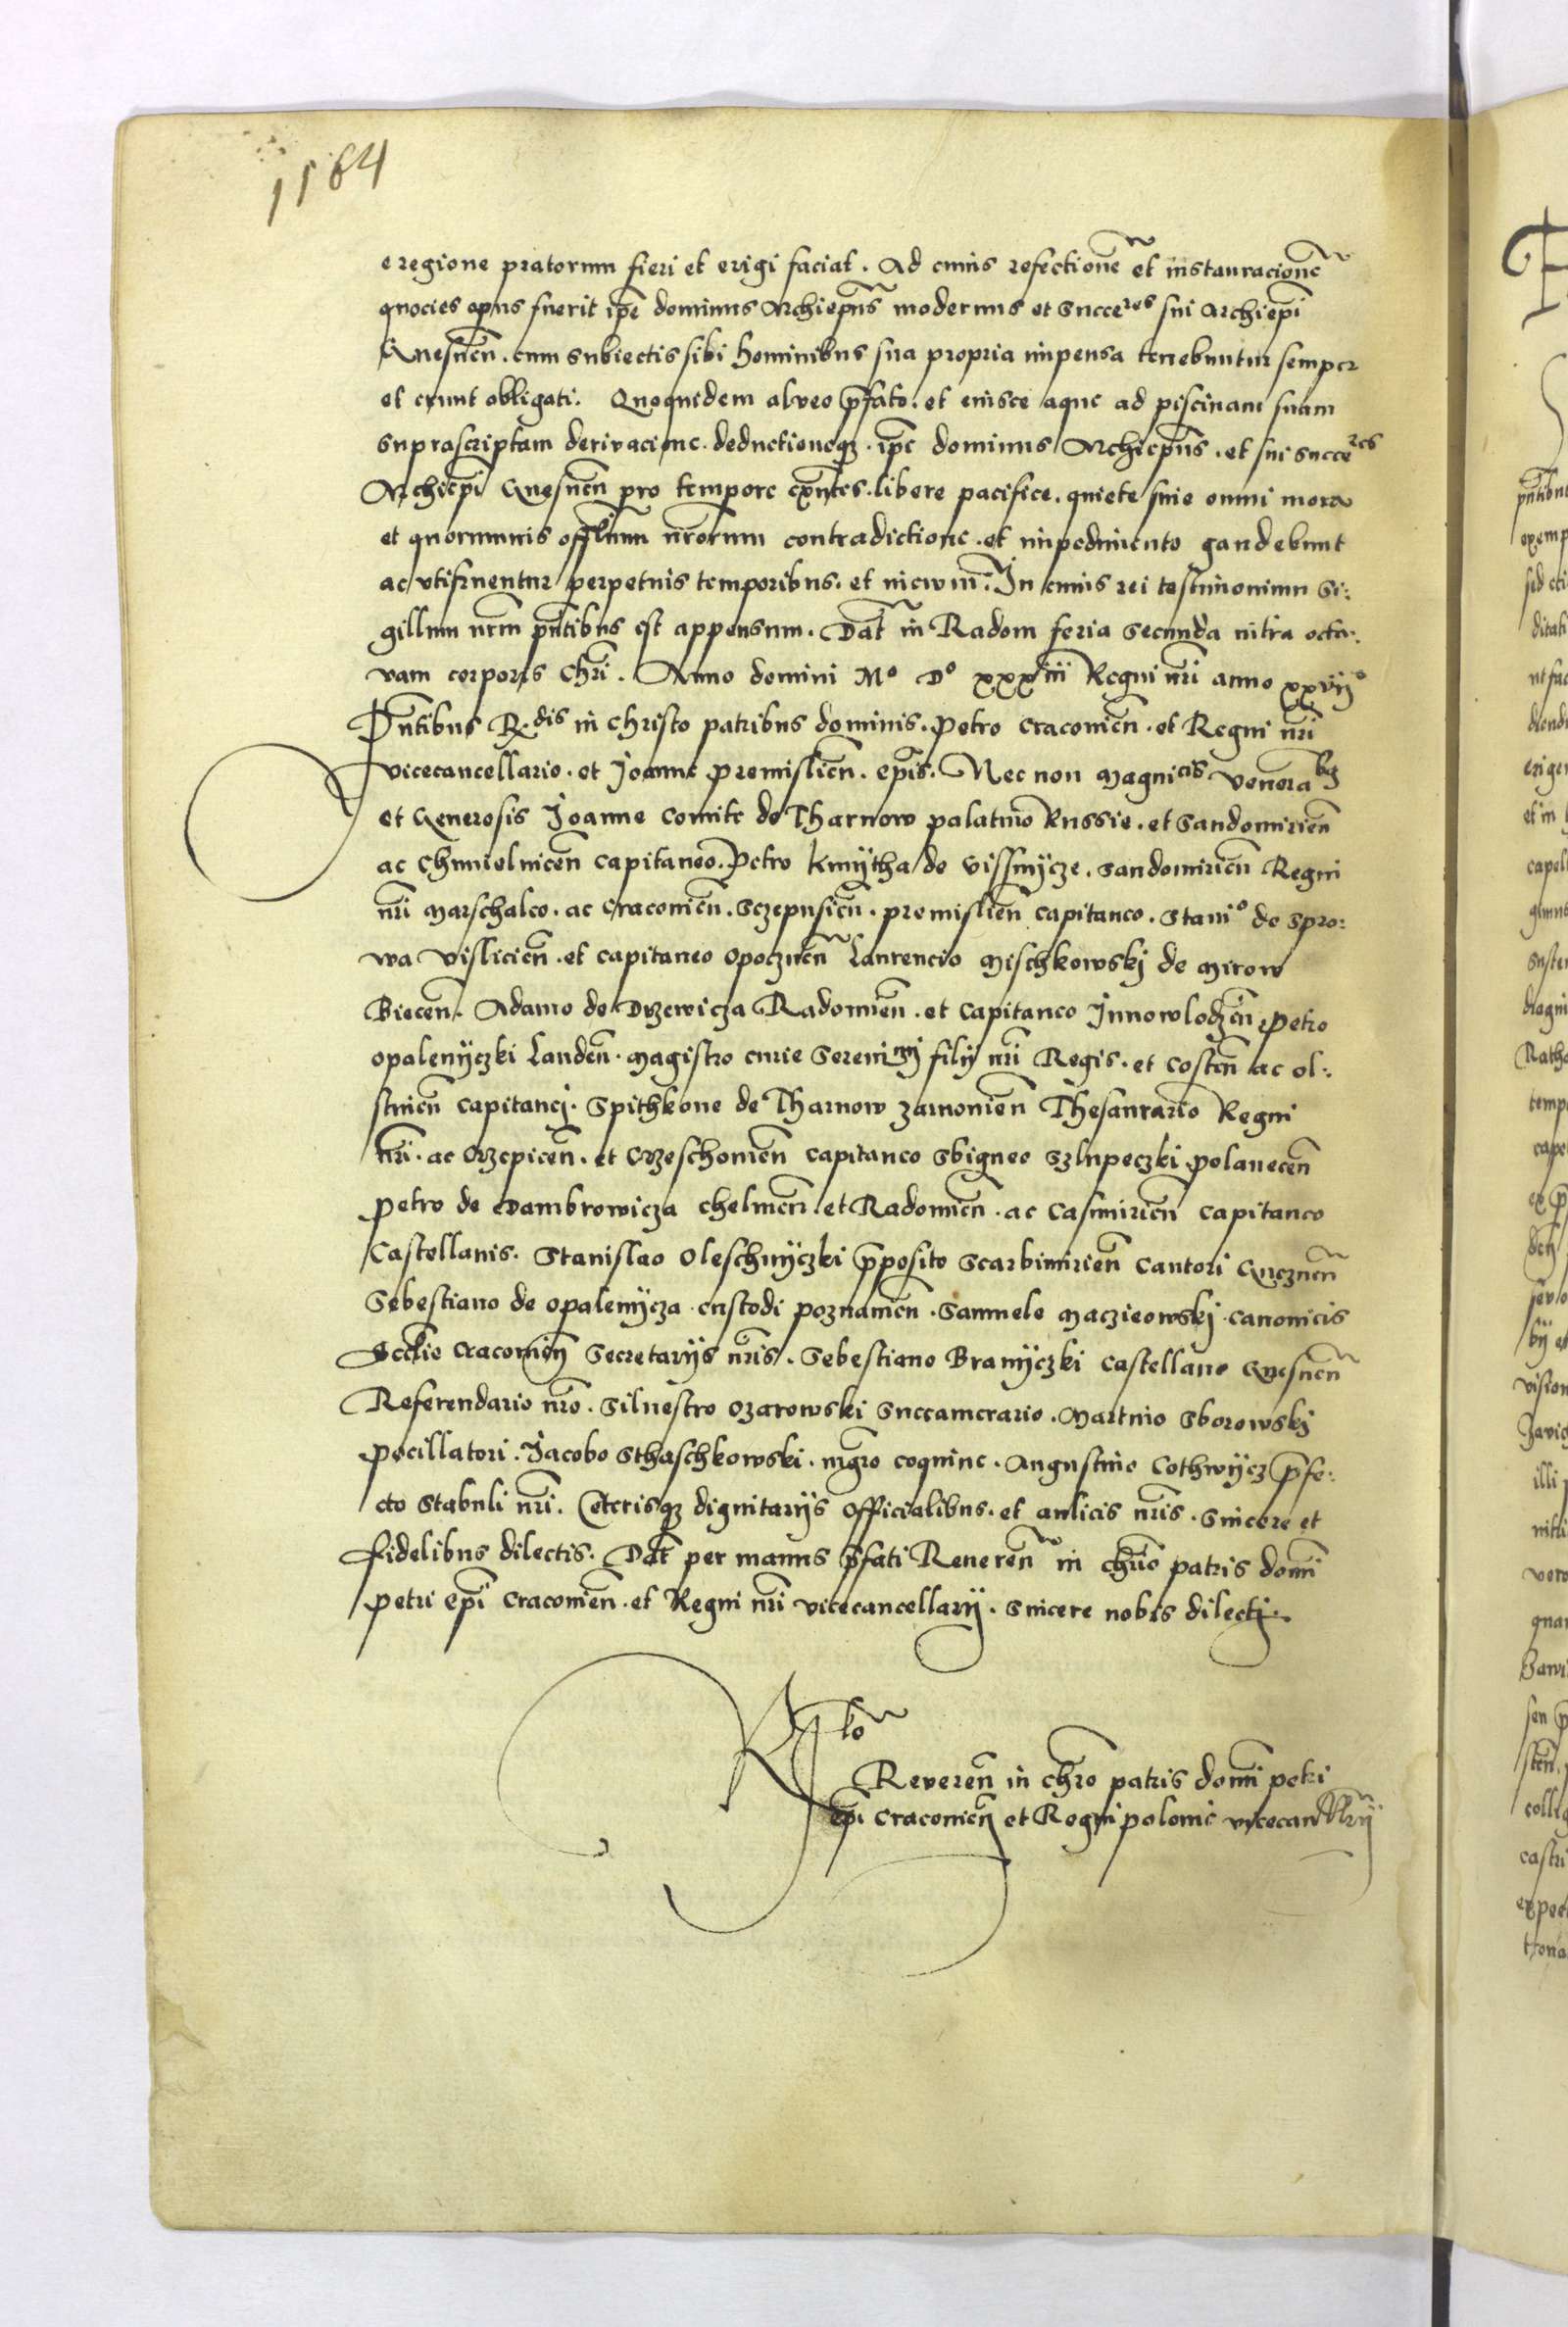 1564
e regione pratorum fieri et erigi faciat. Ad cuius refectionē et instauracionē
quocies opus fuerit ipē dominus Archiepūs modernus et Succeres sui Archiepī
Gnesnēn. cum Subiectis sibi hominibus sua propria impensa tenebuntur semper
et erunt obligati. Quoquidem alveo p̄fato. et eiusce aque ad piscinam suam
Suprascriptam derivacione. deductioneqȝ. ipē dominus Archiepūs. et sui Succeres
Archiepī Gnesnēn pro tempore exn̄tes. libere pacifice. quiete sine omni mora
et quorumvis offlium nrorum contradictione. et impedimento gaudebunt
ac utifruentur perpetuis temporibus. et in ewm. In cuius rei testimonium Si:
gillum nrm pn̄tibus est appensum. Dat̄ in Radom feria Secunda infra octa:
vam corporis Chrī. Anno domini Mo Do xxxiii Regni nrī anno xxvijo
Pn̄tibus R.dis in Christo patribus dominis. Petro Cracoviēn. et Regni nrī
vicecancellario. et Joanne Premisliēn. epīs. Nec non Magnicis Venerabȝ
et Generosis Joanne Comite de Tharnow palatino Russie. et Sandomiriēn
ac Chmielnicēn capitaneo. Petro Kmÿtha de Vissnÿcze. Sandomiriēn Regni
nrī Marschalco. ac Cracoviēn. Sczepusiēn. premisliēn capitaneo. Stanio de Spro:
wa visliciēn. et capitaneo Opocznēn Laurencio Mischkowskj de Mirow
Biecēn. Adamo de Drzewicza Radomiēn. et capitaneo Jnnowlodzēn Petro
Opalenÿczki Landēn. Magistro curie Serenimj filij nrī Regis. et Costēn ac Ol:
stinēn capitanej. Spithkone de Tharnow zarnoviēn Thesaurario Regni
nrī. ac Crzepicēn. et Crzeschoviēn capitaneo Sbigneo Szlupeczki Polanecēn
Petro de Dambrowicza Chelmēn. et Radomiēn. ac Casmiriēn capitaneo
Castellanis. Stanislao Oleschnÿczki p̄posito Scarbimiriēn Cantori Gneznēn
Sebestiano de Opalenÿcza. custodi poznaniēn. Samuele Maczieowskj. canonicis
Eccłie Cracoviēn Secretarijs nrīs. Sebestiano Branÿczki castellano Gnesnēn
Referendario nrō. Silvestro Ozarowski Succamerario. Martino Sborowskj
Pocillatori. Jacobo Sthaschkowski. mgrō coquine. Augustino Cothwÿcz p̄fe:
cto Stabuli nrī. Ceterisqȝ dignitarijs Officialibus. et aulicis nrīs. Sincere et
Fidelibus dilectis. Dat̄ per manus p̄fati Reverēn in chrō patris domī
Petri epī Cracoviēn. et Regni nrī vicecancellarij. Sincere nobis dilectj.
Rłō
Reverēn in chrō patris domī petri
epī Cracoviēn et Regni polonie vicecancellrij